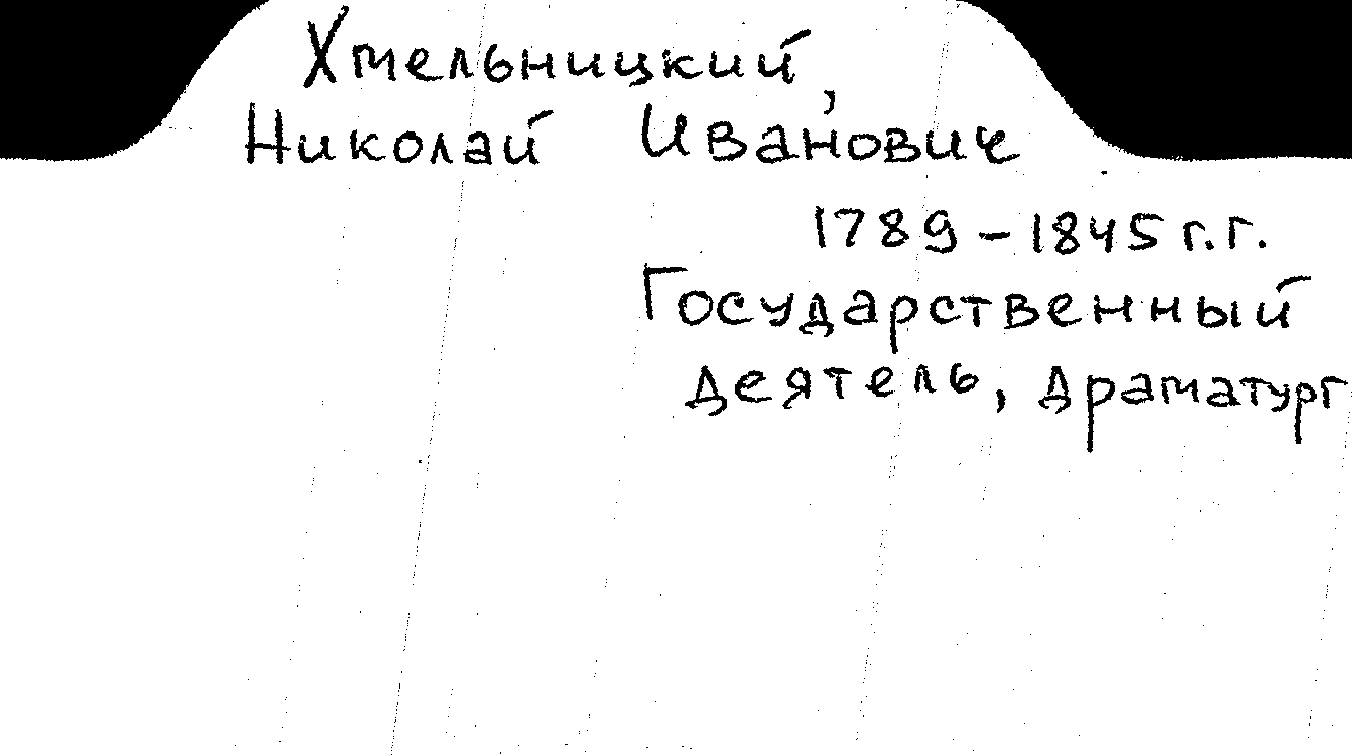 Хмельницкий,
Николай Иванович
1789 – 1845 г.г.
Государственный
деятель, драматург